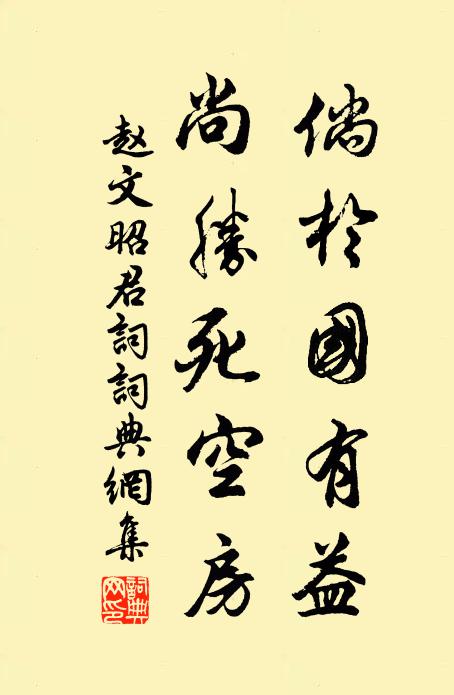 倘於國有益
尚勝死空房
赵文昭君詞詞典網集
詞典网印